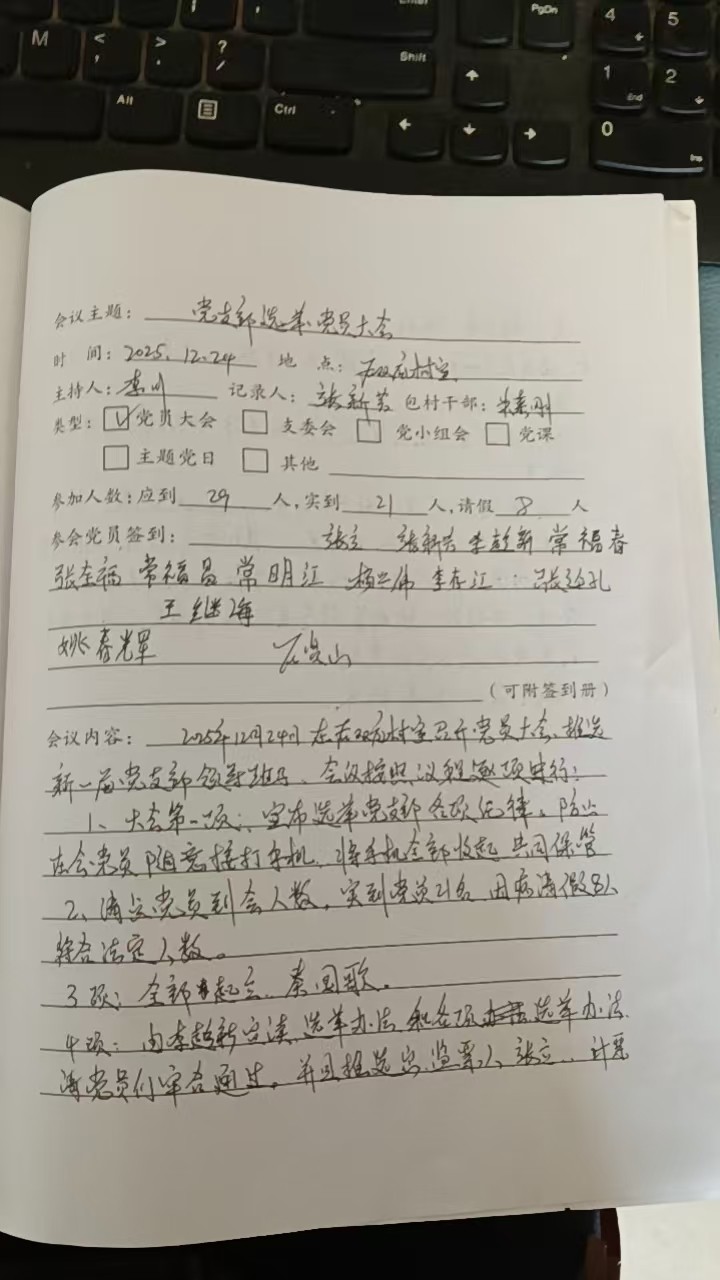 M < , > . ? / Shift Enter PgDn 4 5
Alt Ctrl 1 End 2 0 Ins
会议主题：党支部选举党员大会
时 间：2025.12.24 地 点：村室
主持人：李川 记录人：张新芳 包村干部：
类型：党员大会 支委会 党小组会 党课
主题党日 其他
参加人数：应到 29 人，实到 21 人，请假 8 人
参会党员签到：张立 张新芳 李超新 常福春
张全福 常福昌 常明江 杨兰伟 李存江
王继海
姚春光军 山
（可附签到册）
会议内容：2025年12月24日在村室召开党员大会、推选
新一届党支部领导班子、会议按照议程逐项进行：
1、大会第一项：宣布选举党支部各项纪律。防止
在会党员随意接打手机、将手机全部收起 共同保管
2、清点党员到会人数，实到党员21名 因病请假8人
符合法定人数。
3项：全部起立、奏国歌。
4项：由李超新宣读 选举办法 和各项 选举办法
请党员们审合通过，并且推选出 监票人 张立、计票